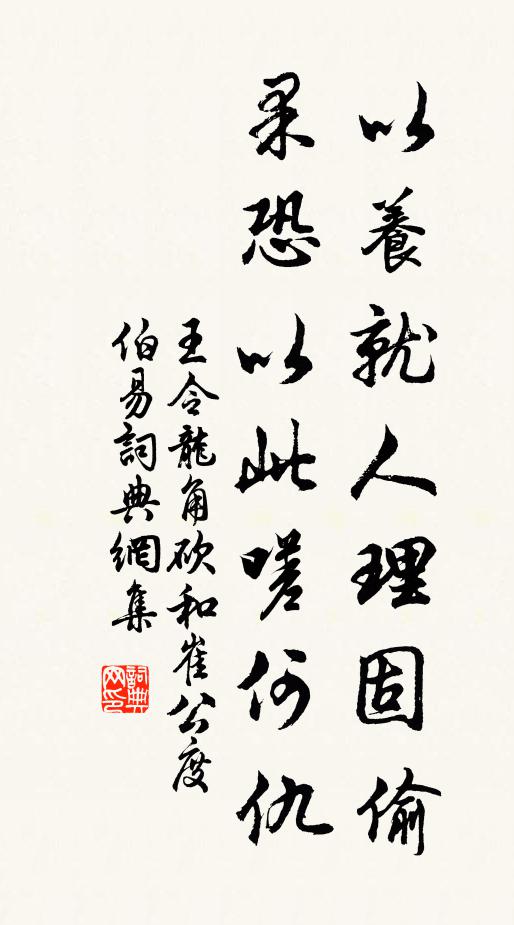 以養就人理固偷
果恐以此嗟何仇
王令龍角砍和崔公度
伯易詞典網集
詞典网印